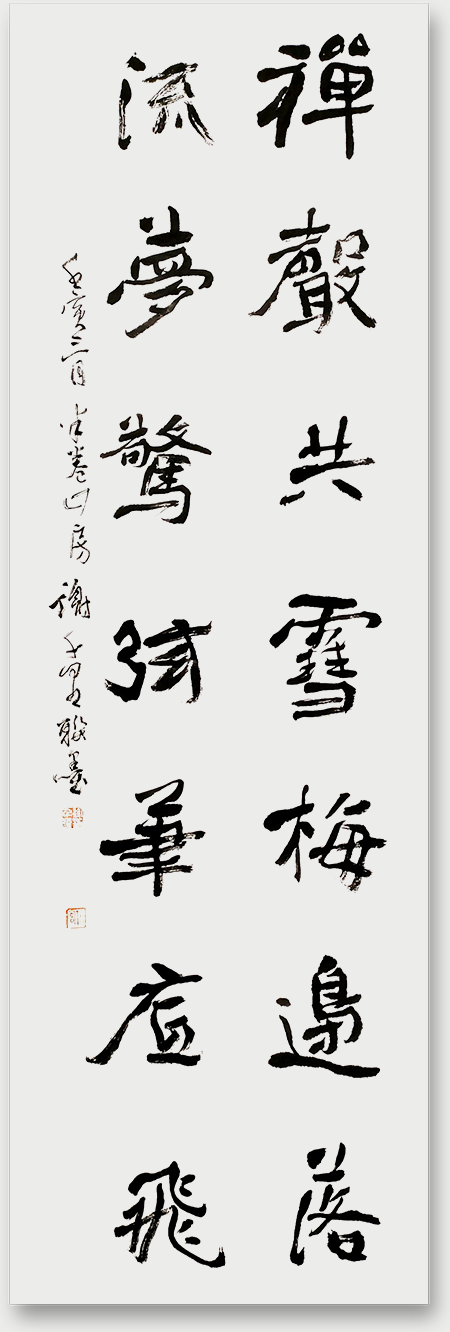 禪聲共雪梅邊落
流夢驚弦筆底飛
壬寅三月半卷山房謝聯墨